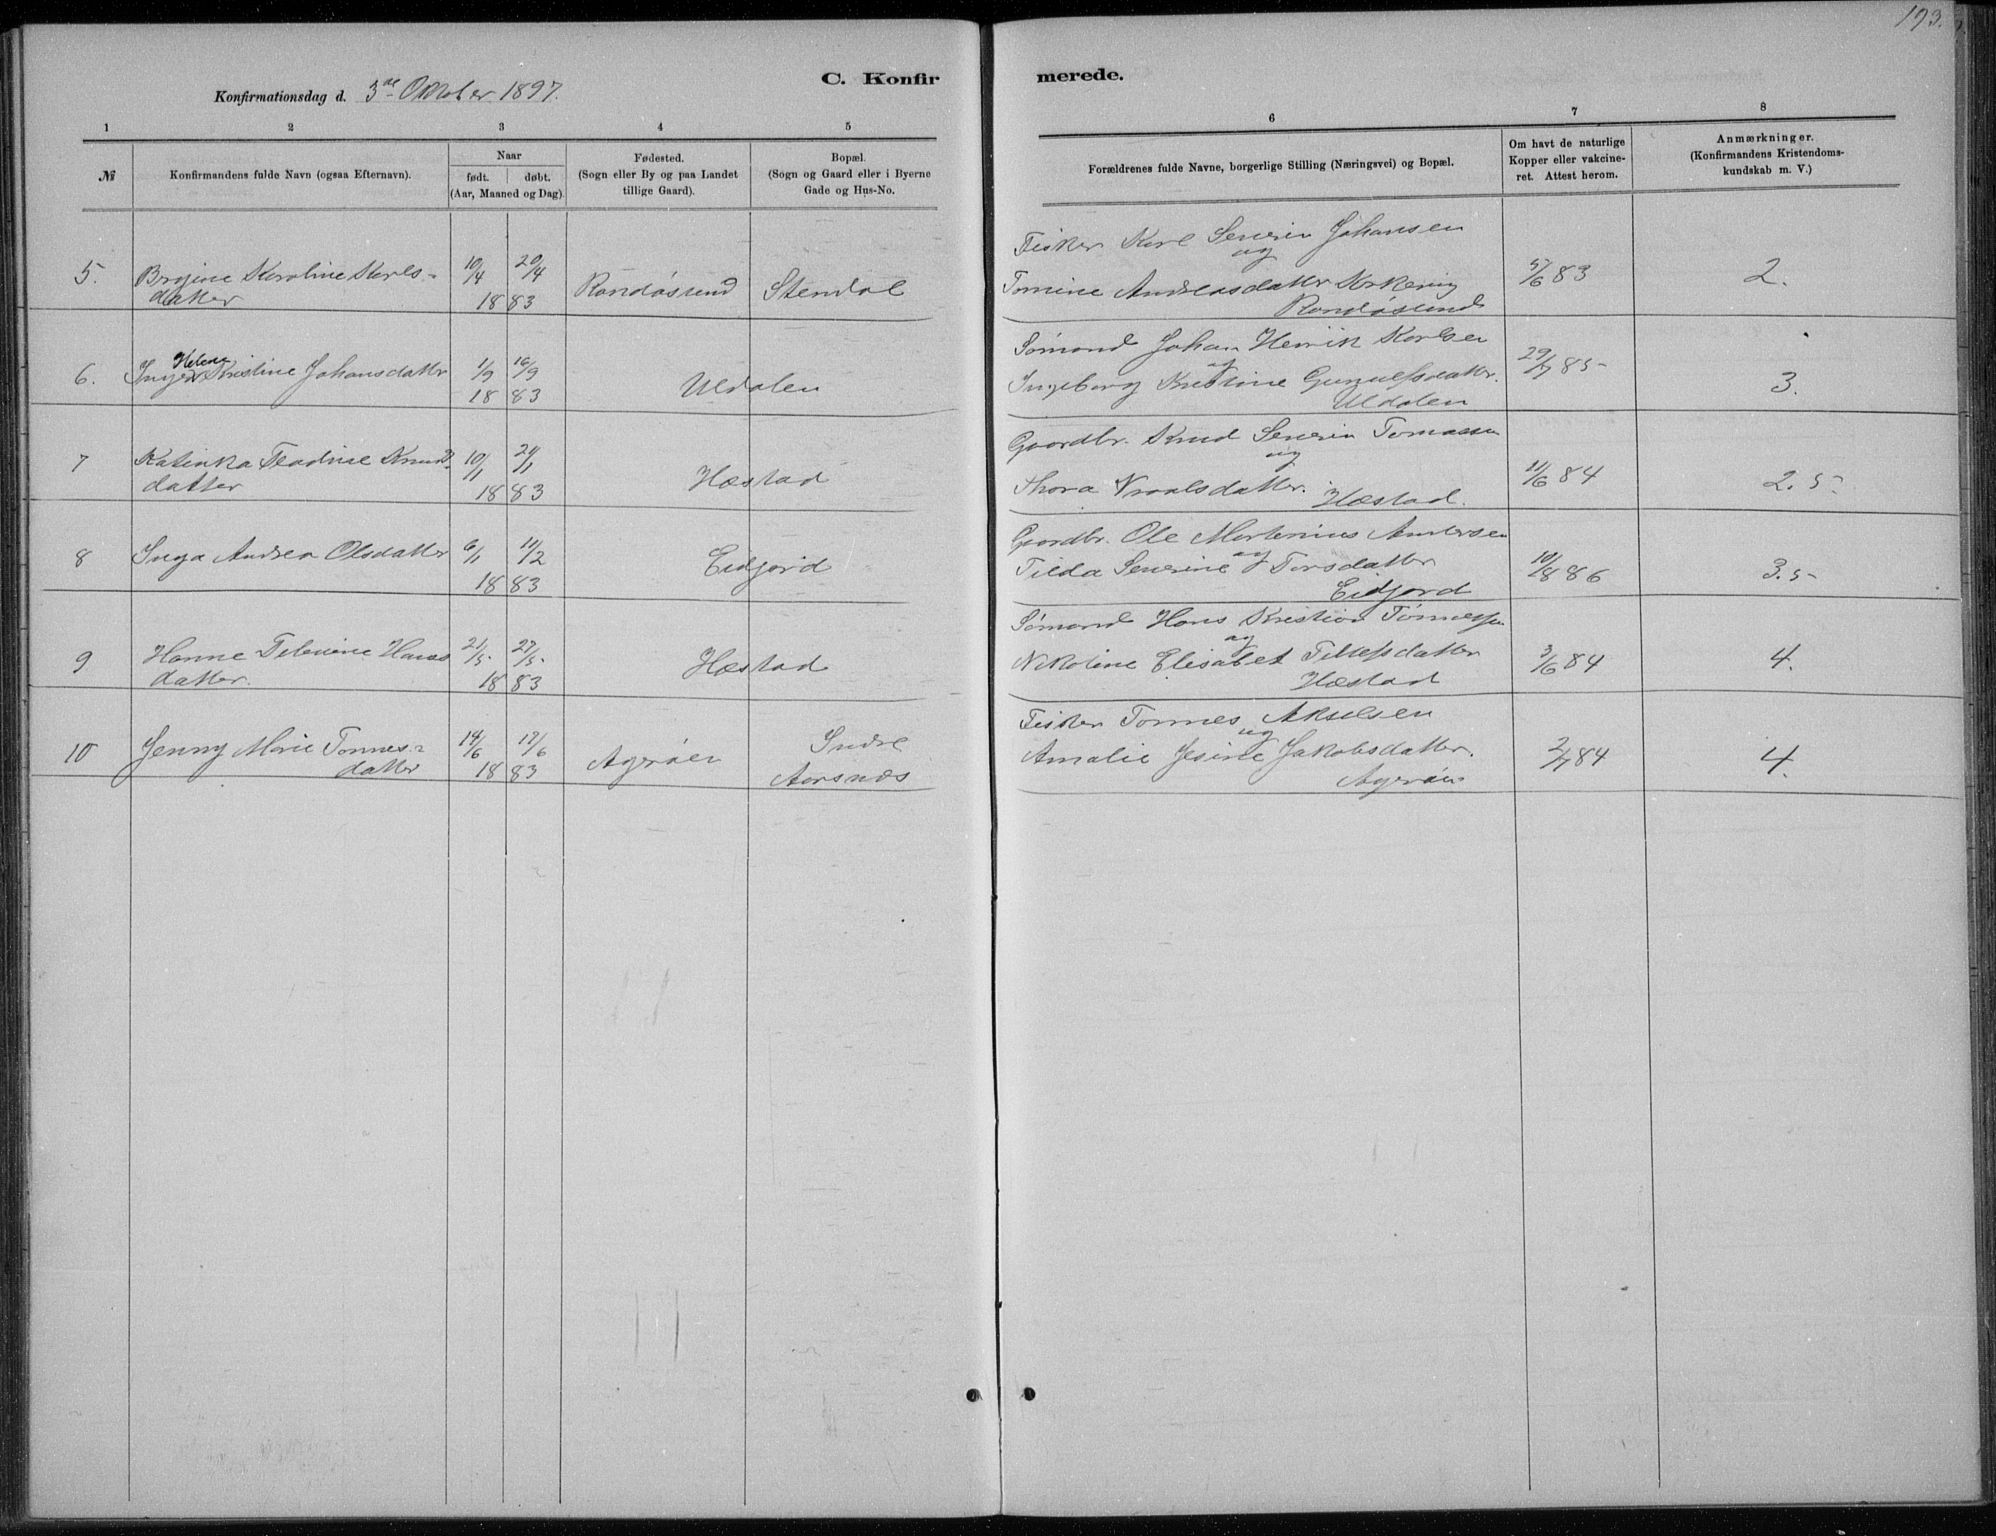 193.
C. Konfir merede.
Konfirmationsdag d. 3de Oktober 1897.
1 2 3 4 5 6 7 8
№
Konfirmandens fulde Navn (ogsaa Efternavn).
Naar
født. døbt.
(Aar, Maaned og Dag).
Fødested.
(Sogn eller By og paa Landet
tillige Gaard).
Bopæl.
(Sogn og Gaard eller i Byerne
Gade og Hus-No.
Forældrenes fulde Navne, borgerlige Stilling (Næringsvei) og Bopæl.
Om havt de naturlige
Kopper eller vakcine-
ret. Attest herom.
Anmærkninger.
(Konfirmandens Kristendoms-
kundskab m. V.)
5. Karoline Karls-
datter
10/4 20/4
18 83
Randøsund Stendal
Fisker Karl Severin Johansen
og
Tomine Andreasdatter
Randøsund
5/6 83 2.
6. Inger Helene Kristine Johansdatter
1/9 16/9
18 83
Uldalen
Sømand Johan Henrik Karlsen
og
Ingeborg Kristine Gunulfsdatter.
Uldalen
29/7 85 3.
7 Katinka Teodine Knuds
datter
10/1 21/1
18 83
Hæstad
Gaardbr. Knud Severin Tomassen
og
Thora Vraalsdatter. Hæstad.
11/6 84 2.5
8 Inga Andrea Olsdatter
6/1 11/2
18 83
Eidjord
Gaardbr. Ole Martenius Andersen
og
Tilda Severine Torsdatter
Eidjord
10/8 86 3.5
9 Hanne Hans
datter.
21/5 27/5
18 83
Hæstad
Sømand Hans Kristian Tønnessen
og
Nikoline Elisabet Tellefsdatter
Hæstad
3/6 84 4.
10 Jenny Marie Tønnes-
datter
14/6 17/6
18 83
Agerøen
Indre
Aarsnæs
Fisker Tønnes Akselsen
og
Amalie Jesine Jakobsdatter.
Agerøen
2/7 84 4.